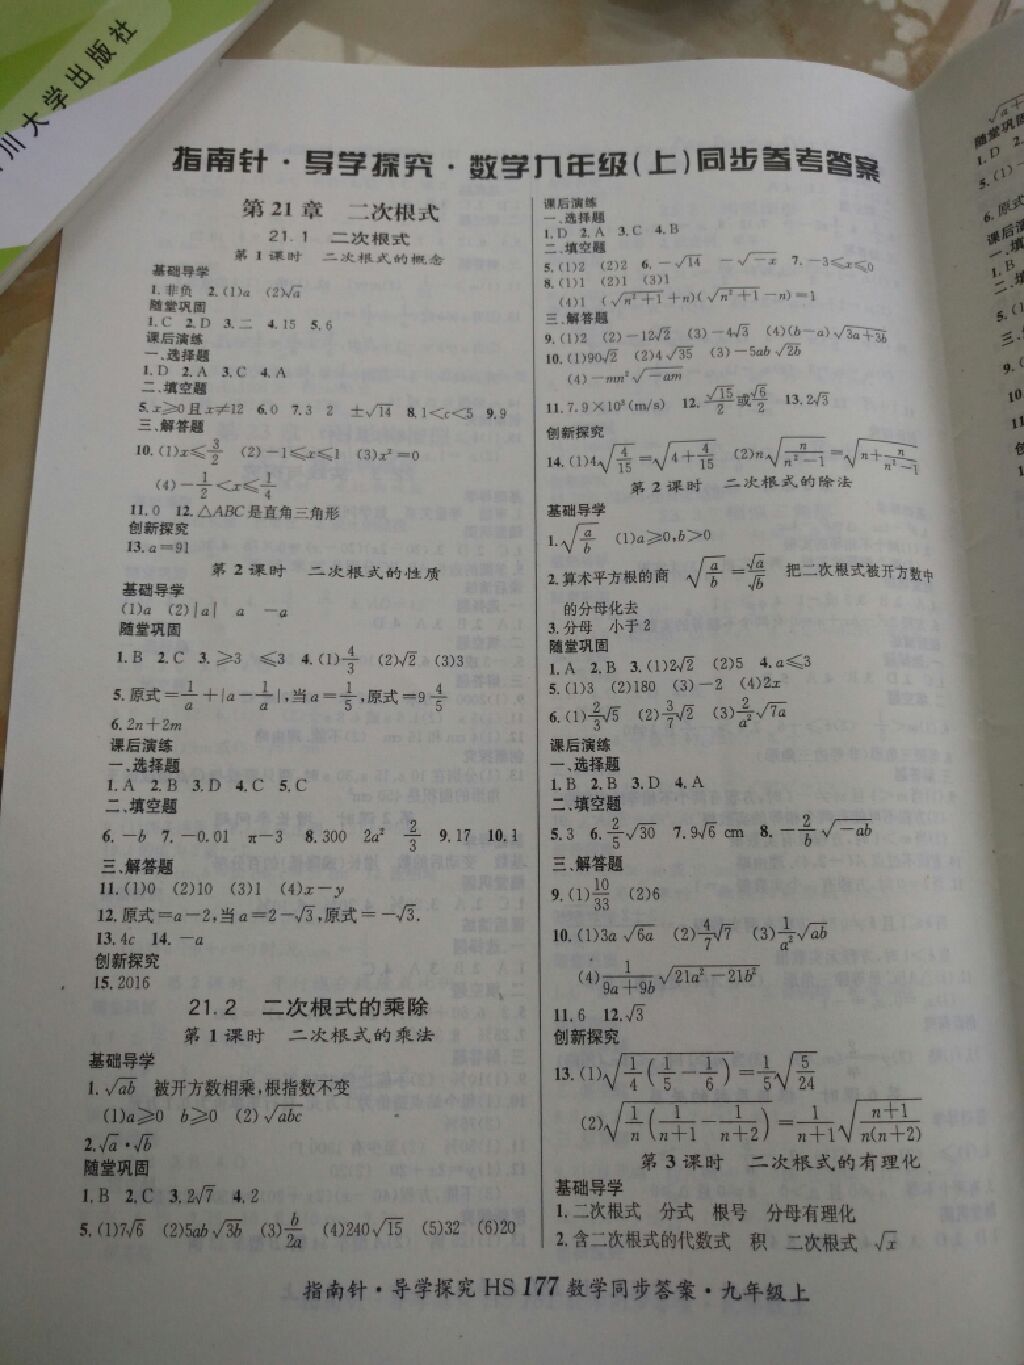 川大学出版社
指南针·导学探究·数学九年级(上)同步参考答案
第21章 二次根式
21.1 二次根式
第1课时 二次根式的概念
基础导学
1.非负 2.(1)a (2)√a
随堂巩固
1.C 2.D 3.二 4.15 5.6
课后演练
一、选择题
1.D 2.A 3.C 4.A
二、填空题
5.x≥0且x≠12 6.0 7.3 2 ±√14 8.1<c<5 9.9
三、解答题
10.(1)x≤3/2 (2)-1≤x≤1 (3)x²=0
(4)-1/2<x≤1/4
11.0 12.△ABC是直角三角形
创新探究
13.a=91
第2课时 二次根式的性质
基础导学
(1)a (2)|a| a -a
随堂巩固
1.B 2.C 3.≥3 ≤3 4.(1)4/3 (2)√2 (3)3
5.原式=1/a+|a-1/a|,当a=1/5,原式=9 4/5
6.2n+2m
课后演练
一、选择题
1.A 2.B 3.D 4.C 5.C
二、填空题
6.-b 7.-0.01 π-3 8.300 2a² 2/3 9.17 10.1
三、解答题
11.(1)0 (2)10 (3)1 (4)x-y
12.原式=a-2,当a=2-√3,原式=-√3.
13.4c 14.-a
创新探究
15.2016
21.2 二次根式的乘除
第1课时 二次根式的乘法
基础导学
1.√ab 被开方数相乘,根指数不变
(1)a≥0 b≥0 (2)√abc
2.√a·√b
随堂巩固
1.B 2.C 3.2√7 4.2
5.(1)7√6 (2)5ab√3b (3)b/2a (4)240√15 (5)32 (6)20
课后演练
一、选择题
1.D 2.A 3.C 4.B
二、填空题
5.(1)2 (2)2 6.-√14 -√-x 7.-3≤x≤0
8.(1)1 (2)1 (3)1
(4)1 (√n²+1+n)(√n²+1-n)=1
三、解答题
9.(1)2 (2)-12√2 (3)-4√3 (4)(b-a)√3a+3b
10.(1)90√2 (2)4√35 (3)-5ab√2b
(4)-mn²√-am
11.7.9×10³(m/s) 12.√15/2或√6/2 13.2√3
创新探究
14.(1)4√4/15=√4+4/15 (2)n√n/n²-1=√n+n/n²-1
第2课时 二次根式的除法
基础导学
1.√a/b (1)a≥0,b>0
2.算术平方根的商 √a/b=√a/√b 把二次根式被开方数中
的分母化去
3.分母 小于2
随堂巩固
1.A 2.B 3.(1)2√2 (2)5 4.a≤3
5.(1)3 (2)180 (3)-2 (4)2x
6.(1)2/3√5 (2)3/7√2 (3)2/a²√7a
课后演练
一、选择题
1.B 2.B 3.D 4.A
二、填空题
5.3 6.2/5√30 7.9√6 cm 8.-2/b√-ab
三、解答题
9.(1)10/33 (2)6
10.(1)3a√6a (2)4/7√7 (3)1/a²√ab
(4)1/9a+9b√21a²-21b²
11.6 12.√3
创新探究
13.(1)√1/4(1/5-1/6)=1/5√5/24
(2)√1/n(1/n+1-1/n+2)=1/n+1√n+1/n(n+2)
第3课时 二次根式的有理化
基础导学
1.二次根式 分式 根号 分母有理化
2.含二次根式的代数式 积 二次根式 √x
指南针·导学探究 HS 177 数学同步答案·九年级上